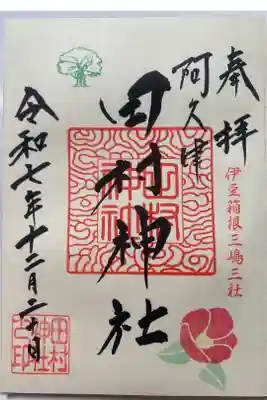 奉拝
伊豆箱根三嶋三社
阿久津
田村神社
令和七年十二月二十日
田村
神社
之印